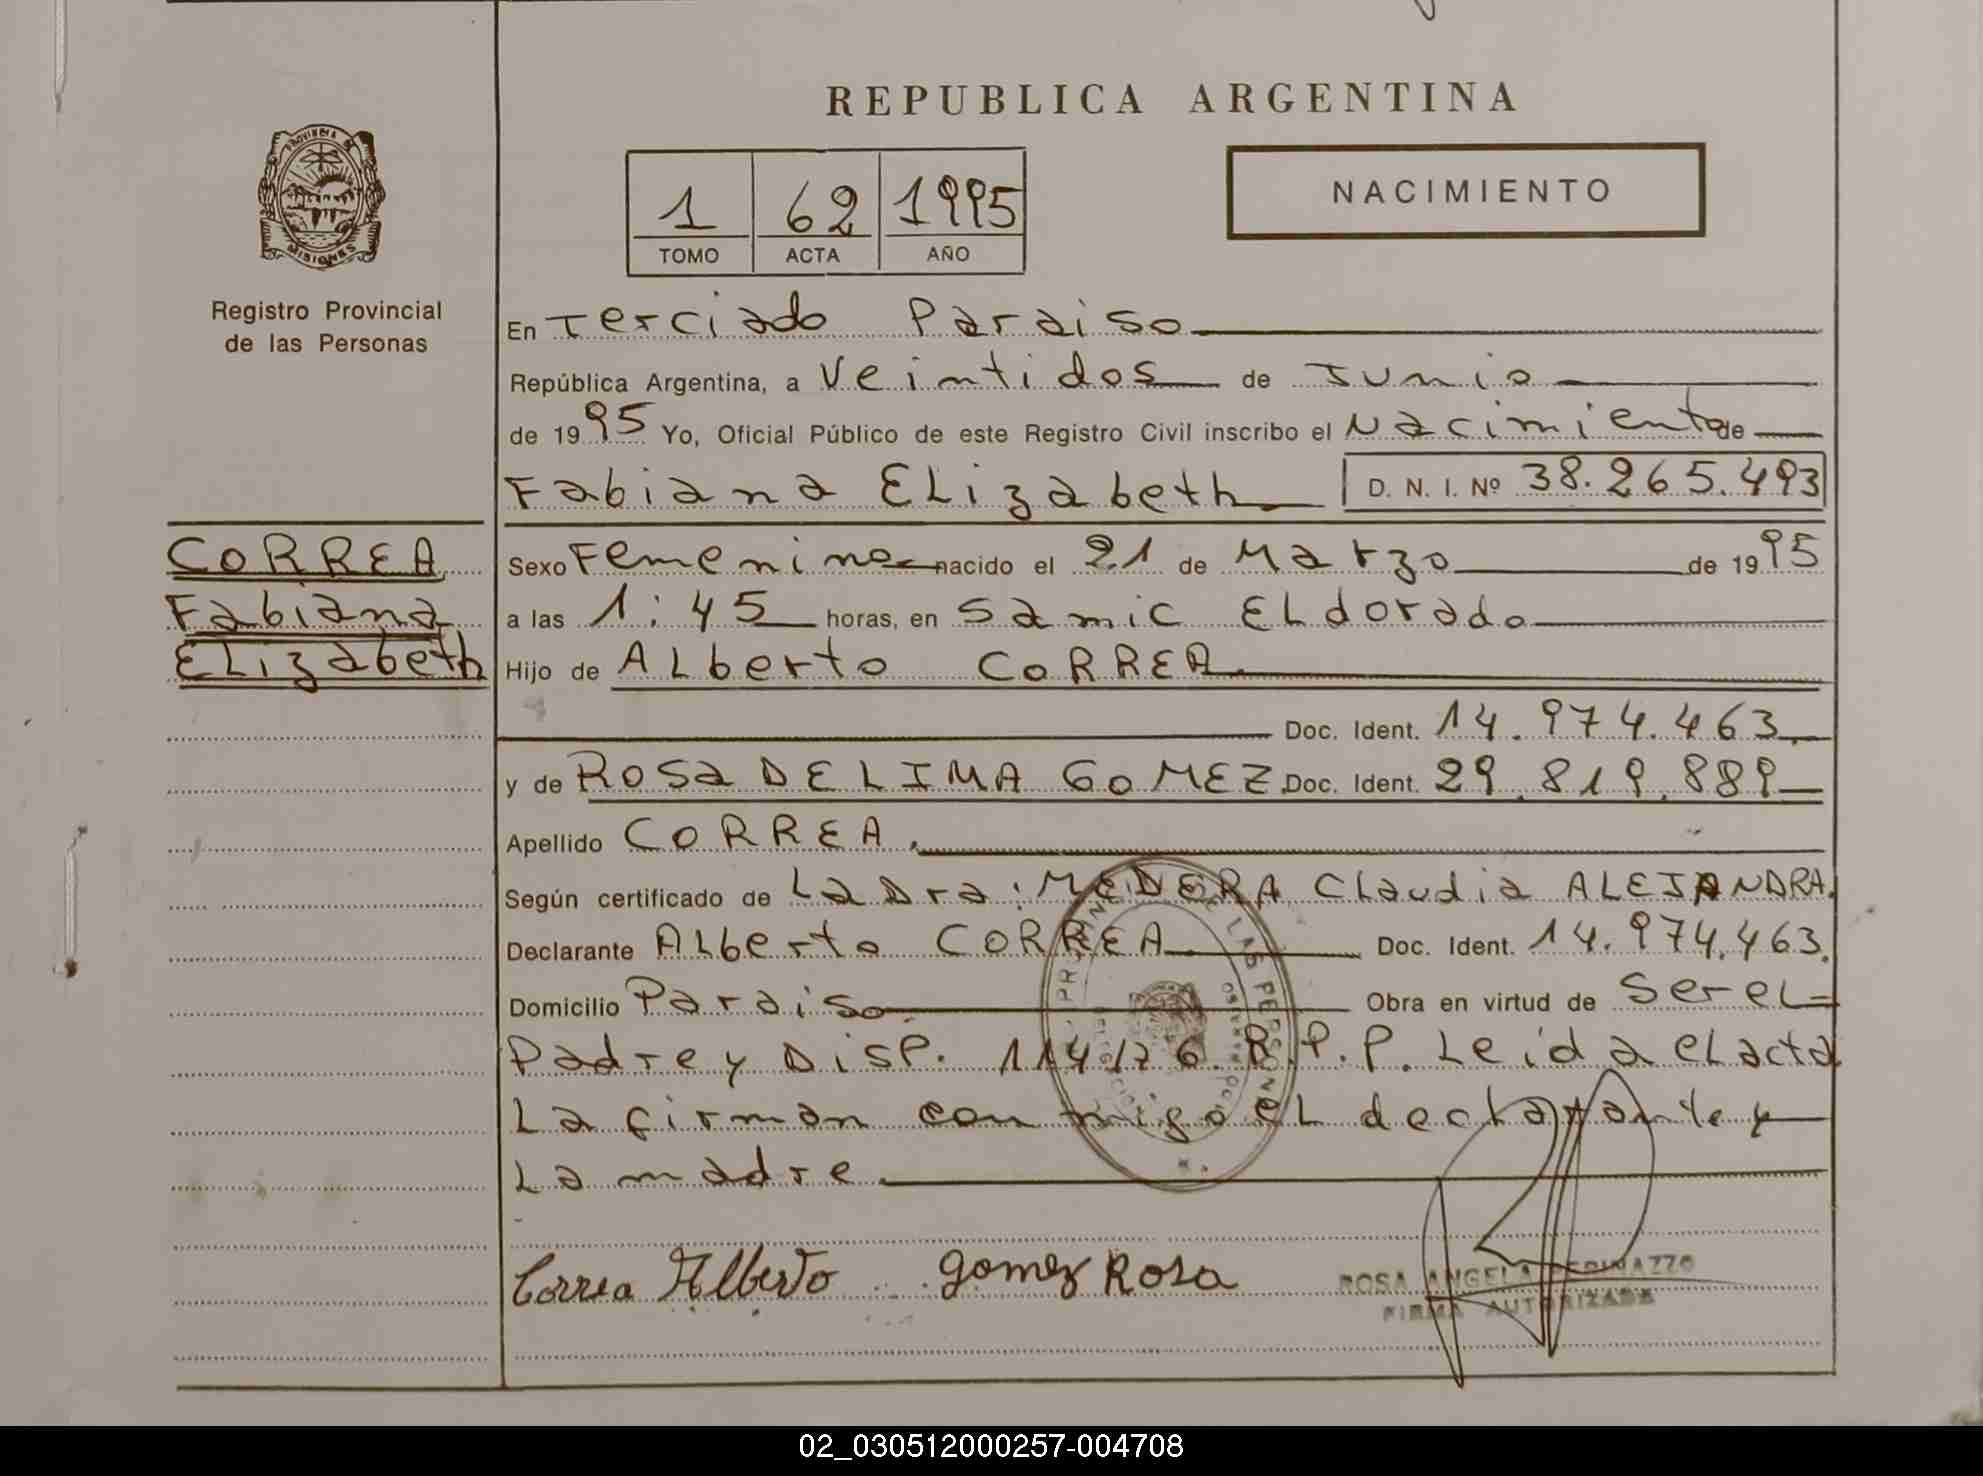 REPUBLICA ARGENTINA
PROVINCIA DE
MISIONES
Registro Provincial
de las Personas
1 62 1995
TOMO ACTA AÑO
NACIMIENTO
En Terciado Paraiso
República Argentina, a Veintidos de Junio
de 1995 Yo, Oficial Público de este Registro Civil inscribo el Nacimiento de
Fabiana ELizabeth D. N. I. Nº 38.265.493
CORREA
Fabiana
ELizabeth
Sexo Femenino nacido el 21 de Marzo de 1995
a las 1:45 horas, en Samic ELdorado
Hijo de ALberto CORREA
Doc. Ident. 14.974.463
y de ROSa DE LIMA GOMEZ Doc. Ident. 29.819.889
Apellido CORREA.
Según certificado de La Dra: MEDERA Claudia ALEJANDRA.
Declarante ALberto CORREA Doc. Ident. 14.974.463.
Domicilio Paraiso Obra en virtud de Ser eL
Padre y DisP. 114/76 R.P.P. Leida eL acta
La firman conmigo eL declarante y
La madre
Correa Alberto Gomez Rosa
ROSA ANGELA
FIRMA AUTORIZADA
02_030512000257-004708